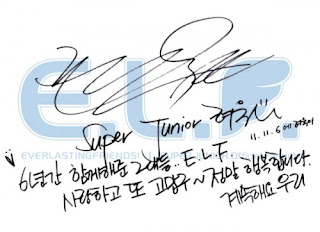 Super Junior 려욱
11.11.6에 려욱이
E.L.F.
EVERLASTINGFRIENDS
6년간 함께해준 그대들.. E.L.F
사랑하고 또 고맙구~ 정말 행복합니다.
계속해요 우리